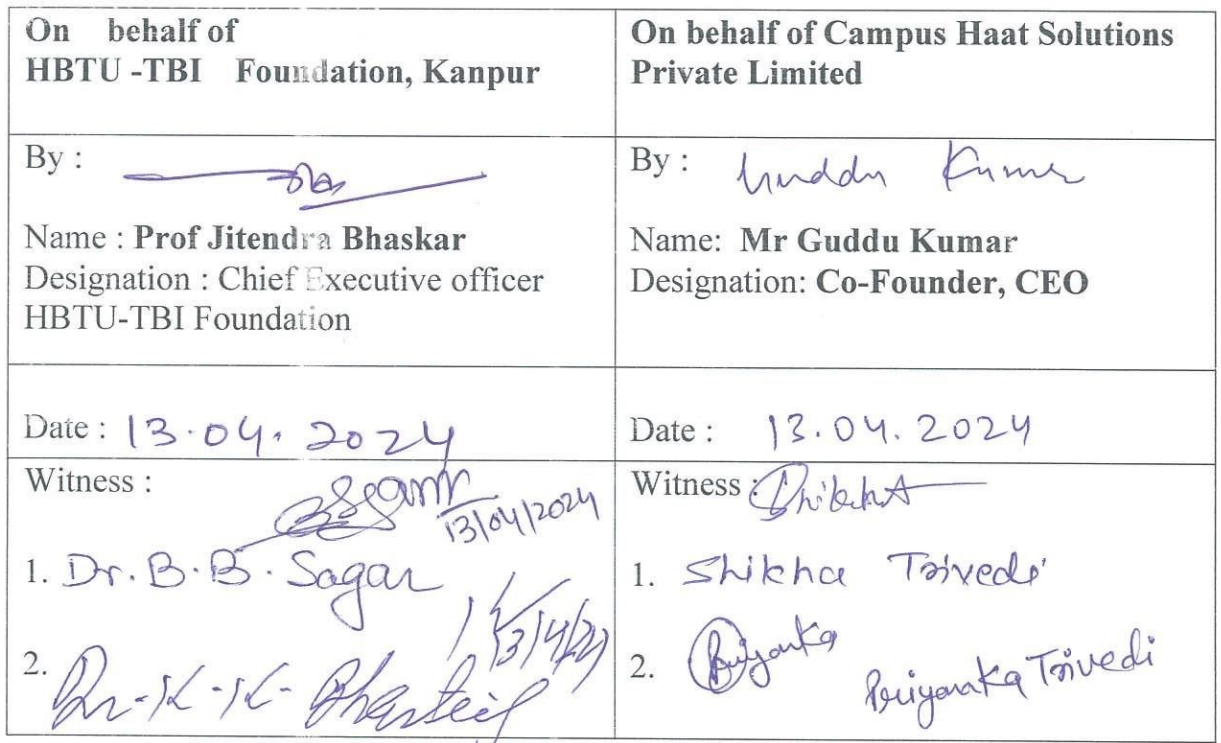 On behalf of
HBTU -TBI Foundation, Kanpur
On behalf of Campus Haat Solutions
Private Limited
By :
Name : Prof Jitendra Bhaskar
Designation : Chief Executive officer
HBTU-TBI Foundation
By : Guddu Kumar
Name: Mr Guddu Kumar
Designation: Co-Founder, CEO
Date : 13.04.2024
Date : 13.04.2024
Witness :
13/04/2024
1. Dr. B. B. Sagar
13/4/24
2. Dr. K. K.
Witness : Shikha
1. Shikha Trivedi
2. Priyanka
Priyanka Trivedi